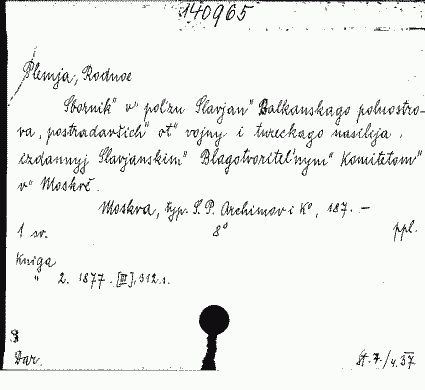 140965
Plemja, Rodnoe
Sbornik" v" pol'zu Slavjan" Balkanskago poluostro-
va, postradavšich" ot" vojny i tureckago nasilija,
izdannyj Slavjanskim" Blagotvoritel'nym" Komitetom"
v" Moskvě.
Moskva, typ. S. P. Archipov i K°, 187. —
1 sv. 8° ppl.
Kniga
" 2. 1877. [III], 312 s.
Dar.
St. 7./4.37